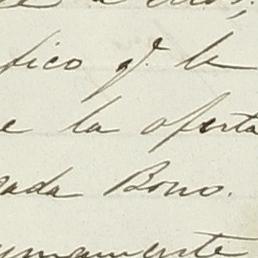 fico q.e le
e la oferta
gada Bono.
umamente